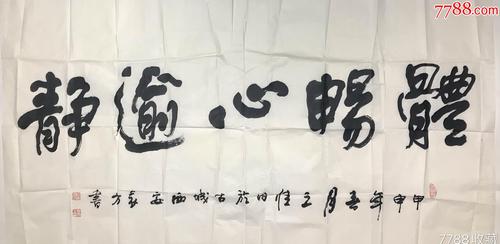 7788.com
體暢心逾靜
甲申年月之佳日於古城西安袁方書
7788收藏